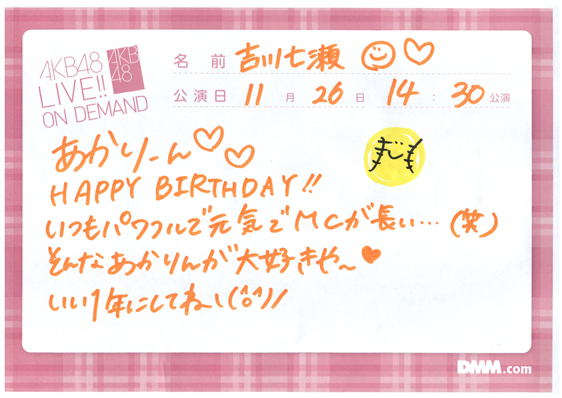 AKB48
LIVE!!
ON DEMAND
AKB
48
名前 吉川七瀬
公演日 11月26日 14:30公演
あかりーん♡♡
まじま
HAPPY BIRTHDAY!!
いつもパワフルで元気でMCが長い…(笑)
そんなあかりんが大好きや〜♥
いい1年にしてね\(^o^)/
DMM.com